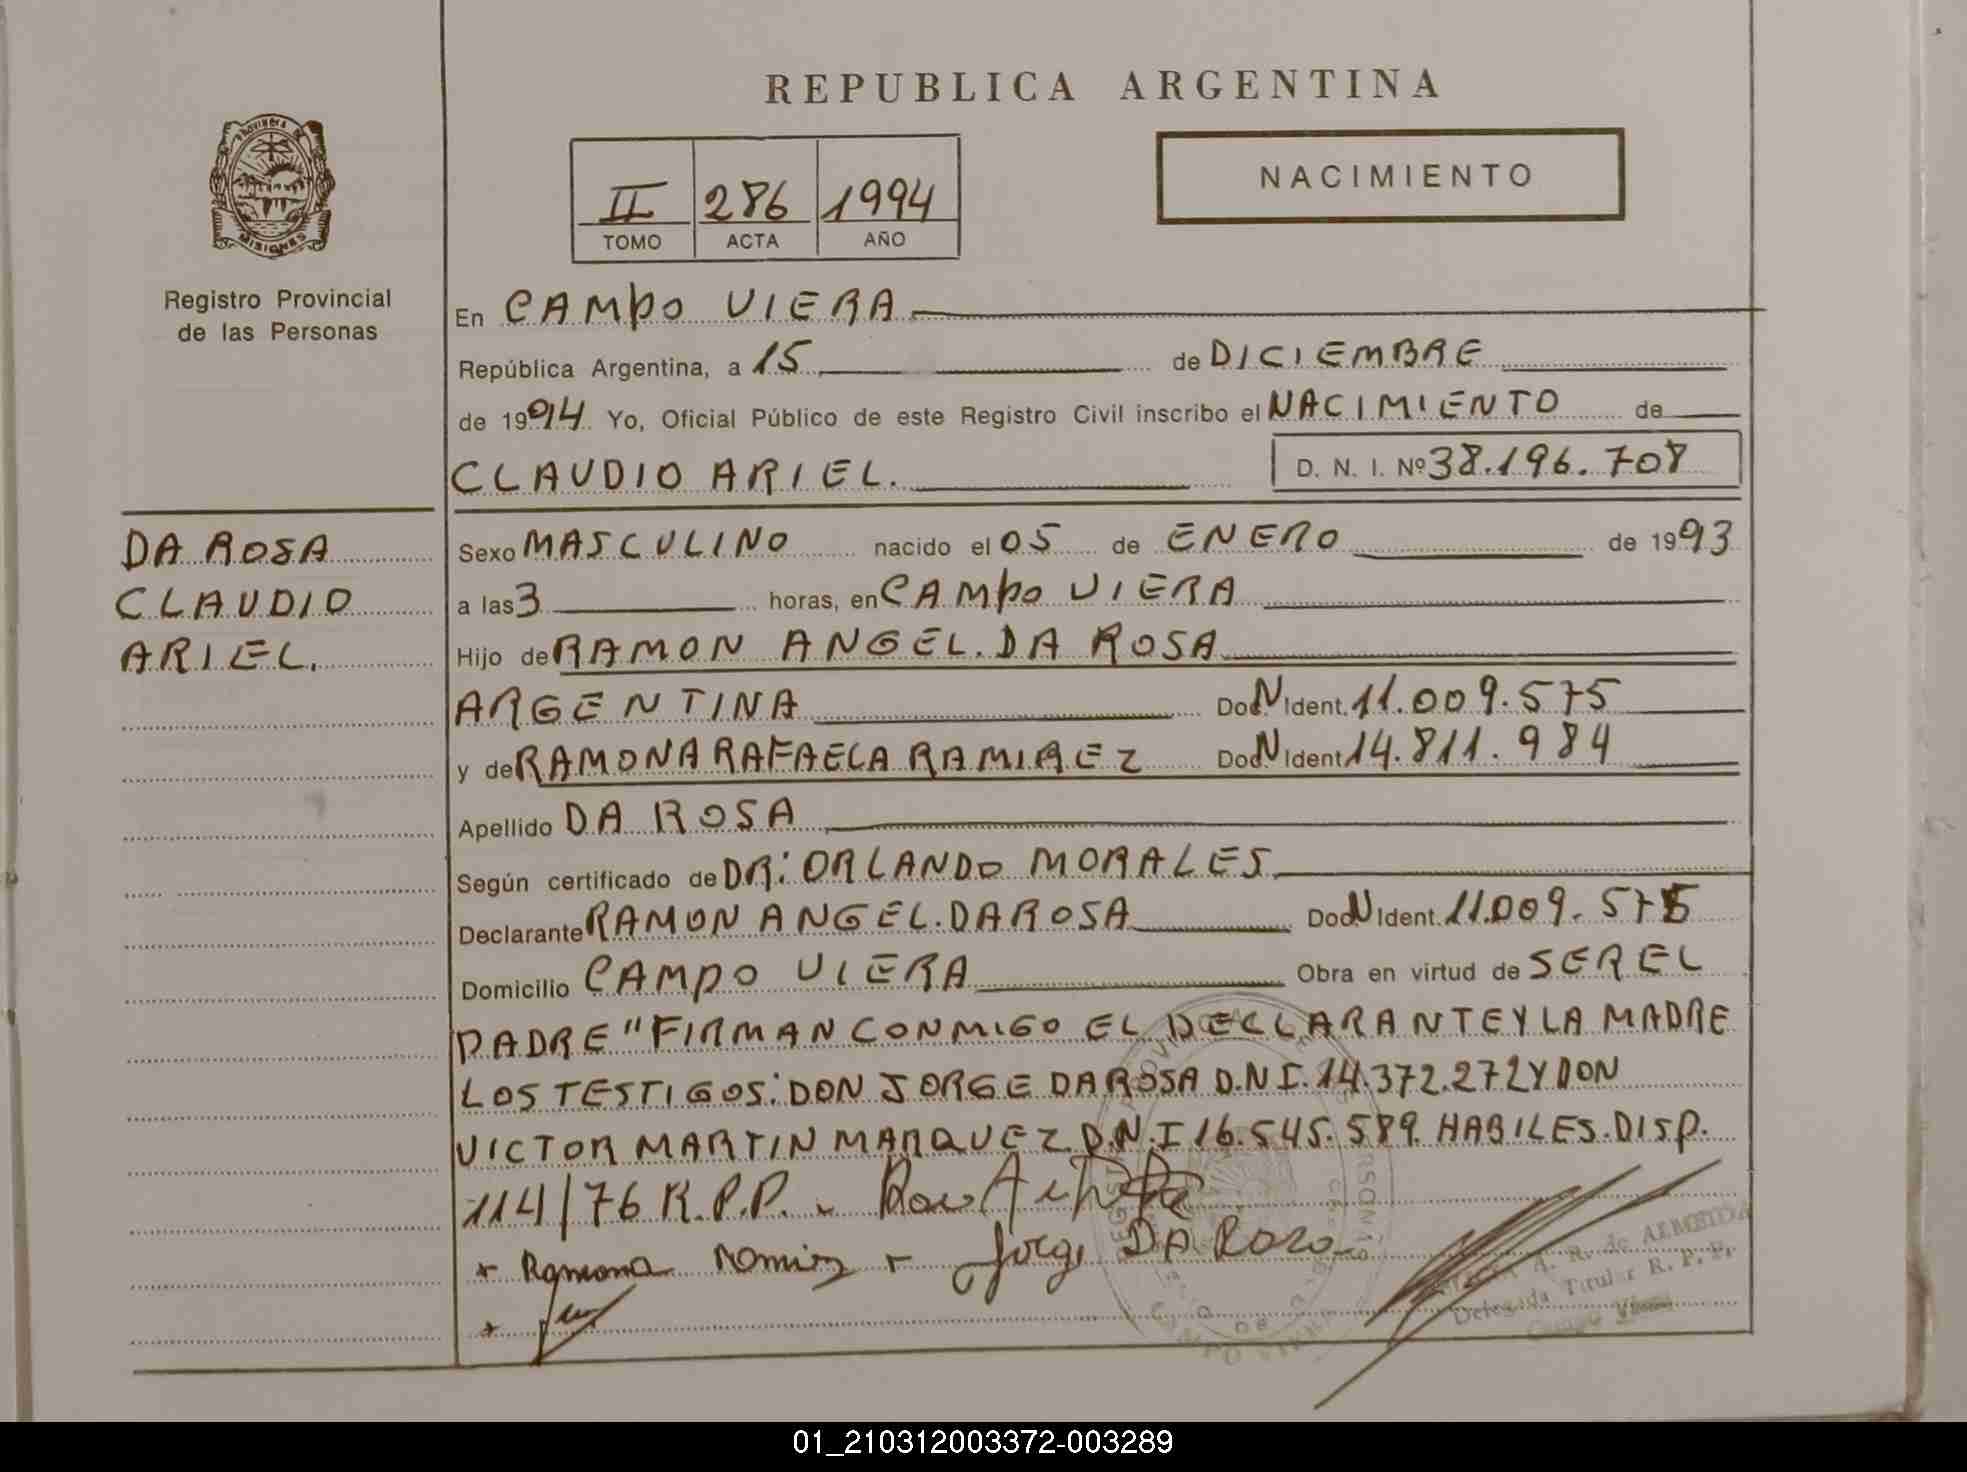 REPUBLICA ARGENTINA
PROVINCIA DE
MISIONES
Registro Provincial
de las Personas
II 286 1994
TOMO ACTA AÑO
NACIMIENTO
En CAMPO VIERA
República Argentina, a 15 de DICIEMBRE
de 1994 Yo, Oficial Público de este Registro Civil inscribo el NACIMIENTO de
CLAUDIO ARIEL. D. N. I. Nº 38.196.708
DA ROSA
CLAUDIO
ARIEL.
Sexo MASCULINO nacido el 05 de ENERO de 1993
a las 3 horas, en CAMPO VIERA
Hijo de RAMON ANGEL. DA ROSA
ARGENTINA Doc. N Ident. 11.009.575
y de RAMONA RAFAELA RAMIREZ Doc. N Ident. 14.811.984
Apellido DA ROSA
Según certificado de DR: ORLANDO MORALES
Declarante RAMON ANGEL. DA ROSA Doc. N Ident. 11.009.575
Domicilio CAMPO VIERA Obra en virtud de SER EL
PADRE " FIRMAN CONMIGO EL DECLARANTE Y LA MADRE
LOS TESTIGOS: DON JORGE DA ROSA D.N.I. 14.372.272 Y DON
VICTOR MARTIN MARQUEZ D.N.I 16.545.589. HABILES. DISP.
114/76 R.P.P.
+ Ramona Ramirez + Jorge DA ROSA
A. R. de ALMEIDA
Delegada Titular R. P. P.
Campo Viera
01_210312003372-003289